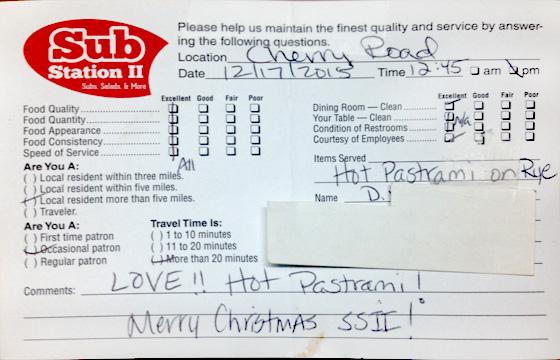 Sub
Station II
Subs, Salads, & More
Please help us maintain the finest quality and service by answer-
ing the following questions.
Location Cherry Road
Date 12/17/2015 Time 12:45 am pm
Excellent Good Fair Poor
Food Quality
Food Quantity
Food Appearance
Food Consistency
Speed of Service
All
Excellent Good Fair Poor
Dining Room — Clean
Your Table — Clean n/a
Condition of Restrooms
Courtesy of Employees
Are You A:
( ) Local resident within three miles.
( ) Local resident within five miles.
( ) Local resident more than five miles.
( ) Traveler.
Items Served
Hot Pastrami on Rye
Name D.
Are You A:
( ) First time patron
( ) Occasional patron
( ) Regular patron
Travel Time Is:
( ) 1 to 10 minutes
( ) 11 to 20 minutes
( ) More than 20 minutes
Comments: LOVE!! Hot Pastrami!
Merry Christmas SSII!